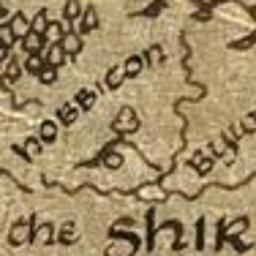 HOBBITON
BYW
the SHIR